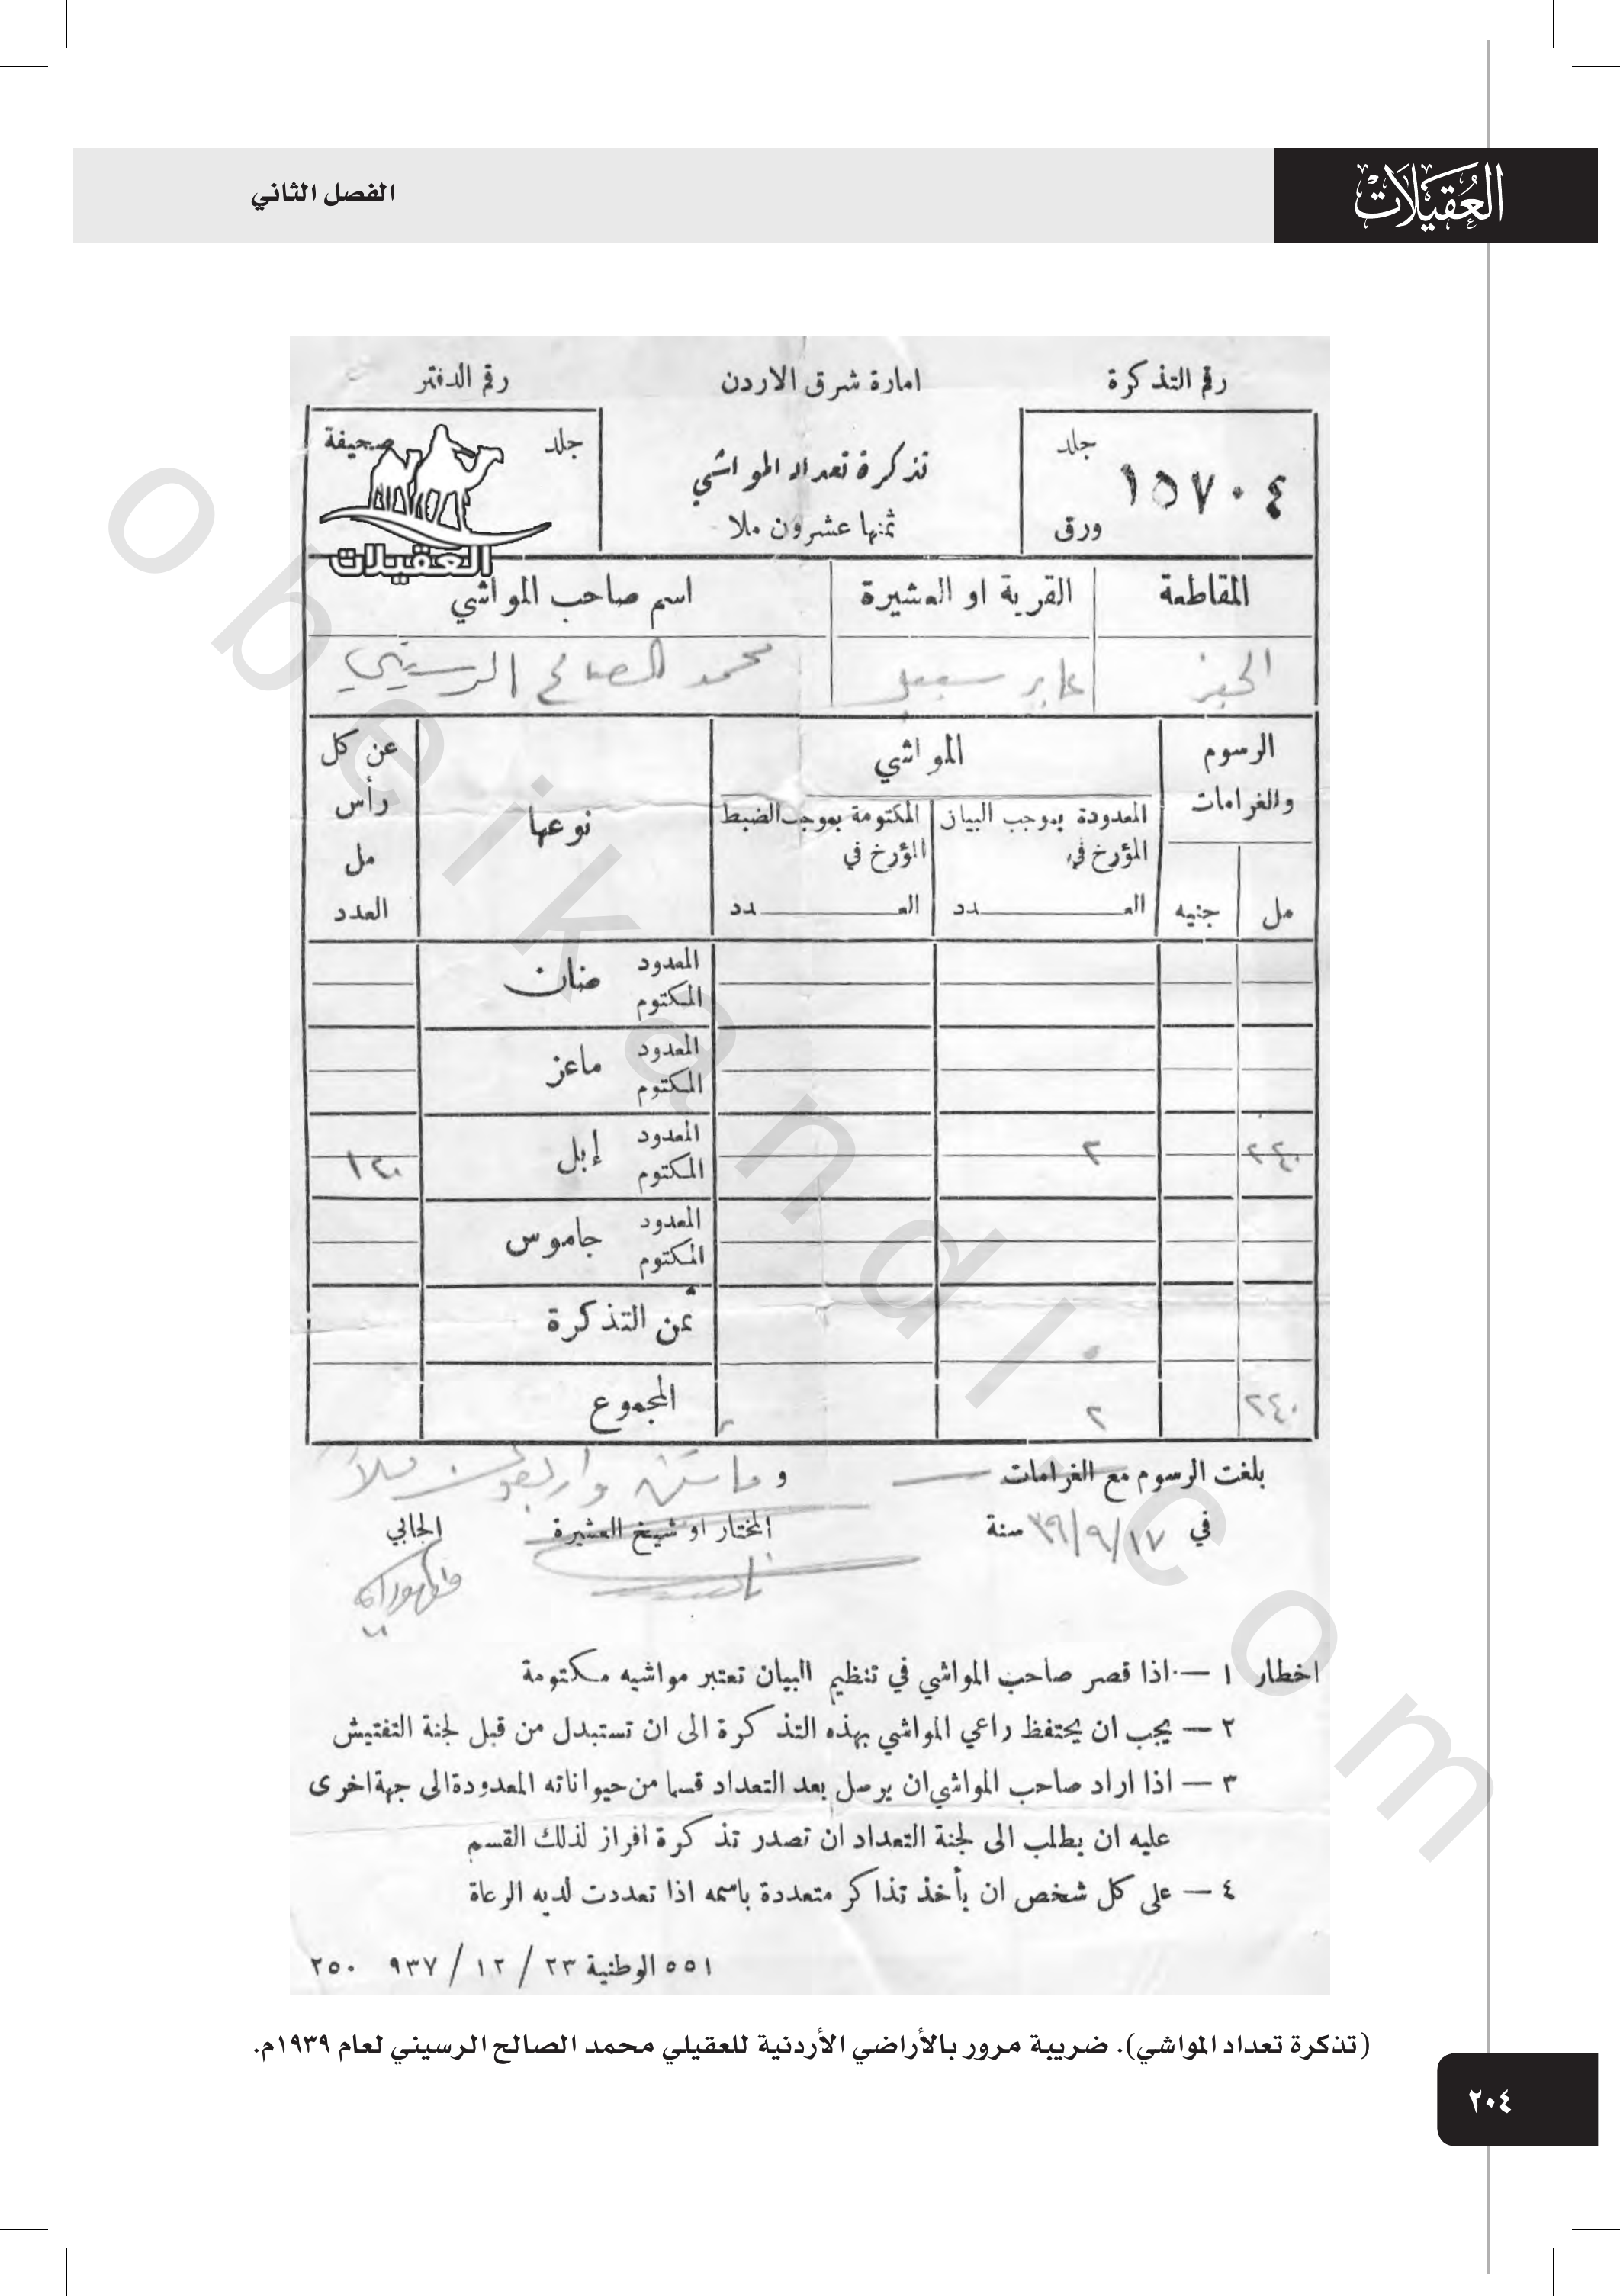 العُقَيْلَاتْ
الفصل الثاني
رقم التذكرة
امارة شرق الاردن
رقم الدفتر
جلد
١٥٧٠٤
ورق
تذكرة تعداد المواشي
ثمنها عشرون ملا
جلد صحيفة
العقيلات
المقاطعة القرية او العشيرة اسم صاحب المواشي
عابر سبيل محمد الصالح الرسيني
الرسوم والغرامات
المواشي
نوعها
عن كل رأس
المعدودة بموجب البيان المؤرخ في
المكتومة بموجب الضبط المؤرخ في
مل
مل جنيه العدد العدد العدد
المعدود
ضان
المكتوم
المعدود
ماعز
المكتوم
المعدود
٢٤٠ ٢ إبل ١٢٠
المكتوم
المعدود
جاموس
المكتوم
ثمن التذكرة
٢٤٠ ٢ المجموع
بلغت الرسوم مع الغرامات و مائتين واربعون ملاً
في ١٧/٩/٣٩ سنة المختار او شيخ العشيرة الجابي
اخطار ١ — اذا قصر صاحب المواشي في تنظيم البيان تعتبر مواشيه مكتومة
٢ — يجب ان يحتفظ راعي المواشي بهذه التذكرة الى ان تستبدل من قبل لجنة التفتيش
٣ — اذا اراد صاحب المواشي ان يرسل بعد التعداد قسما من حيواناته المعدودة الى جهة اخرى
عليه ان يطلب الى لجنة التعداد ان تصدر تذكرة افراز لذلك القسم
٤ — على كل شخص ان يأخذ تذاكر متعددة باسمه اذا تعددت لديه الرعاة
٥٥١ الوطنية ٢٣ / ١٢ / ٩٣٧ ٢٥٠
(تذكرة تعداد المواشي). ضريبة مرور بالأراضي الأردنية للعقيلي محمد الصالح الرسيني لعام ١٩٣٩م.
٢٠٤
obeikandl.com